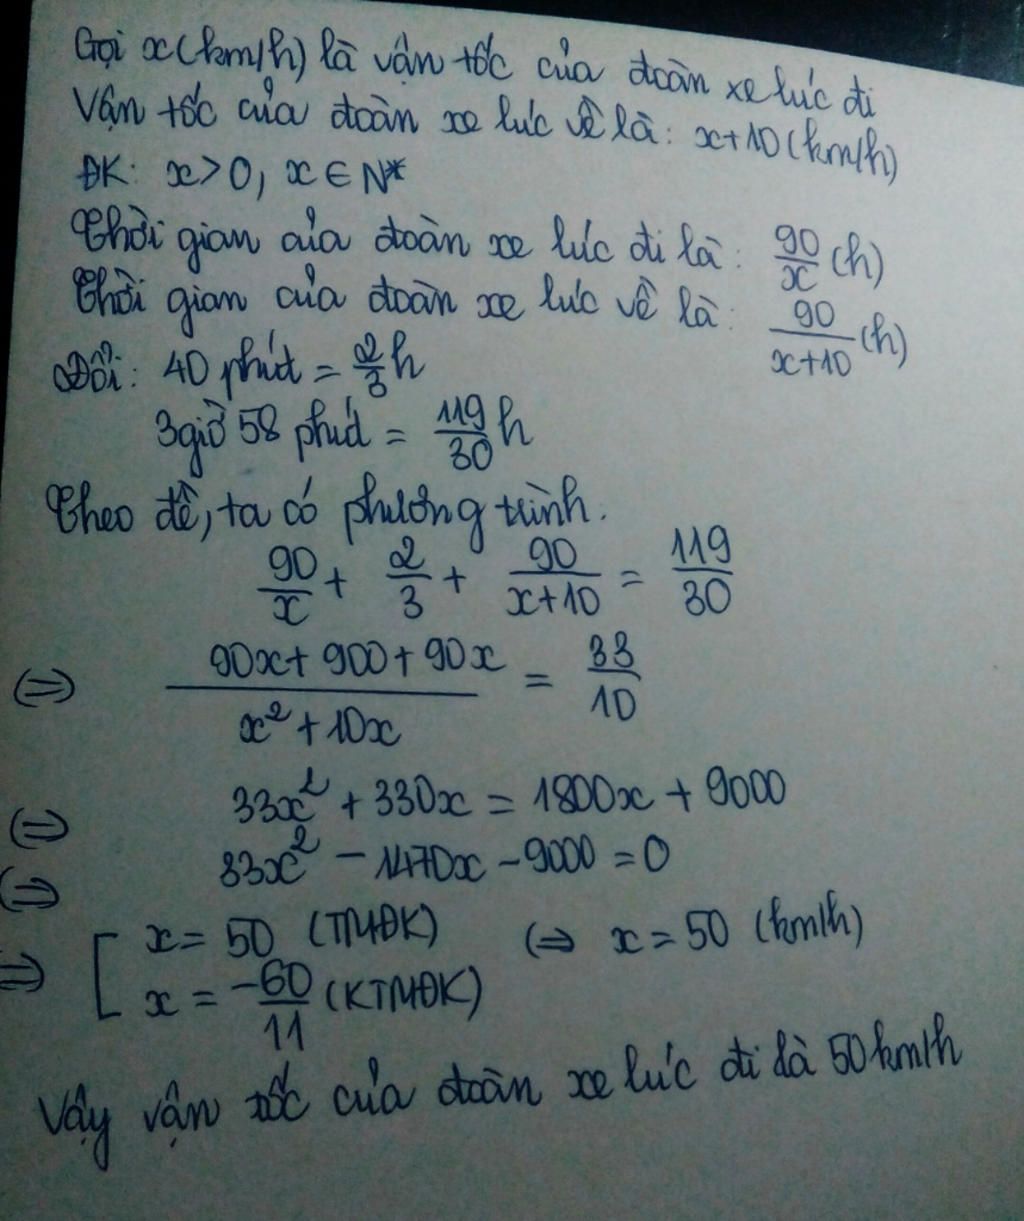 Gọi x(km/h) là vận tốc của đoàn xe lúc đi
Vận tốc của đoàn xe lúc về là: x+10(km/h)
ĐK: x>0, x ∈ N*
Thời gian của đoàn xe lúc đi là: 90/x (h)
Thời gian của đoàn xe lúc về là: 90/(x+10) (h)
Đổi: 40 phút = 2/3 h
3giờ 58 phút = 119/30 h
Theo đề, ta có phương trình.
90/x + 2/3 + 90/(x+10) = 119/30
(=) (90x + 900 + 90x)/(x² + 10x) = 33/10
(=) 33x² + 330x = 1800x + 9000
(=) 33x² - 1470x - 9000 = 0
=) [ x = 50 (TMĐK) (=) x = 50 (km/h)
x = -60/11 (KTMĐK)
Vậy vận tốc của đoàn xe lúc đi là 50km/h